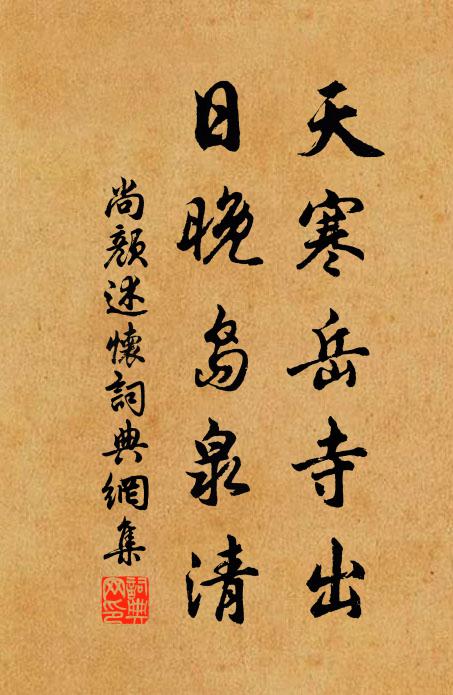 天寒岳寺出
日晚島泉清
尚顏述懷詞典網集
詞典
网印